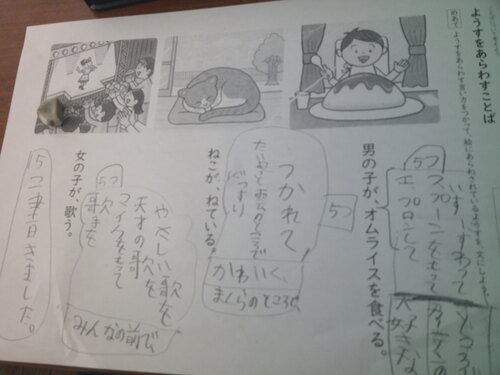 ようすをあらわすことば
めあて
ようすをあらわす言い方をつかって、絵にあらわされているようすを、文にしよう。
男の子が、オムライスを食べる。
5つ
いすにすわって
スプーンをもって
エプロンして
大好きな
ねこが、ねている。
5つ
つかれて
ぐっすり
かわいく、
まくらのところで
女の子が、歌う。
5つ
やさしい歌を
天才の歌を
マイクをもって
歌手を
みんなの前で
5つ書きました。